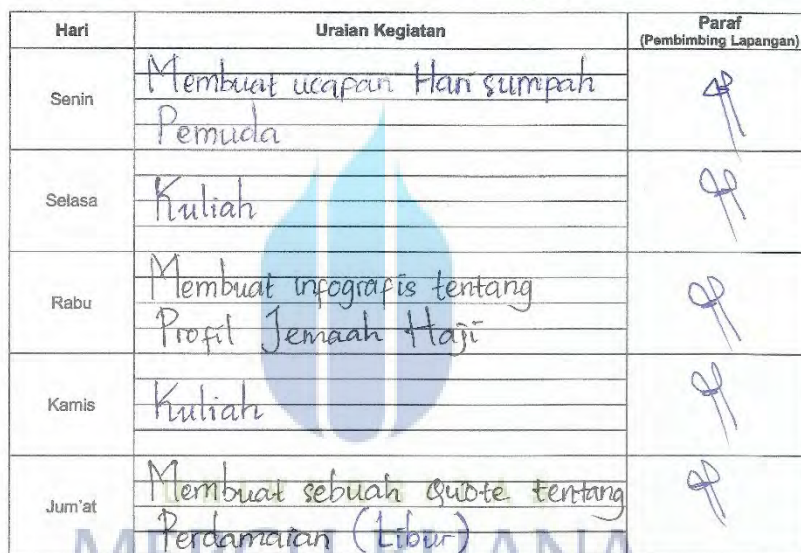 Hari Uraian Kegiatan Paraf
(Pembimbing Lapangan)
Senin
Membuat ucapan Hari sumpah
Pemuda
Selasa
Kuliah
Rabu
Membuat infografis tentang
Profil Jemaah Haji
Kamis
Kuliah
Jum'at
Membuat sebuah Quote tentang
Perdamaian (Libur)